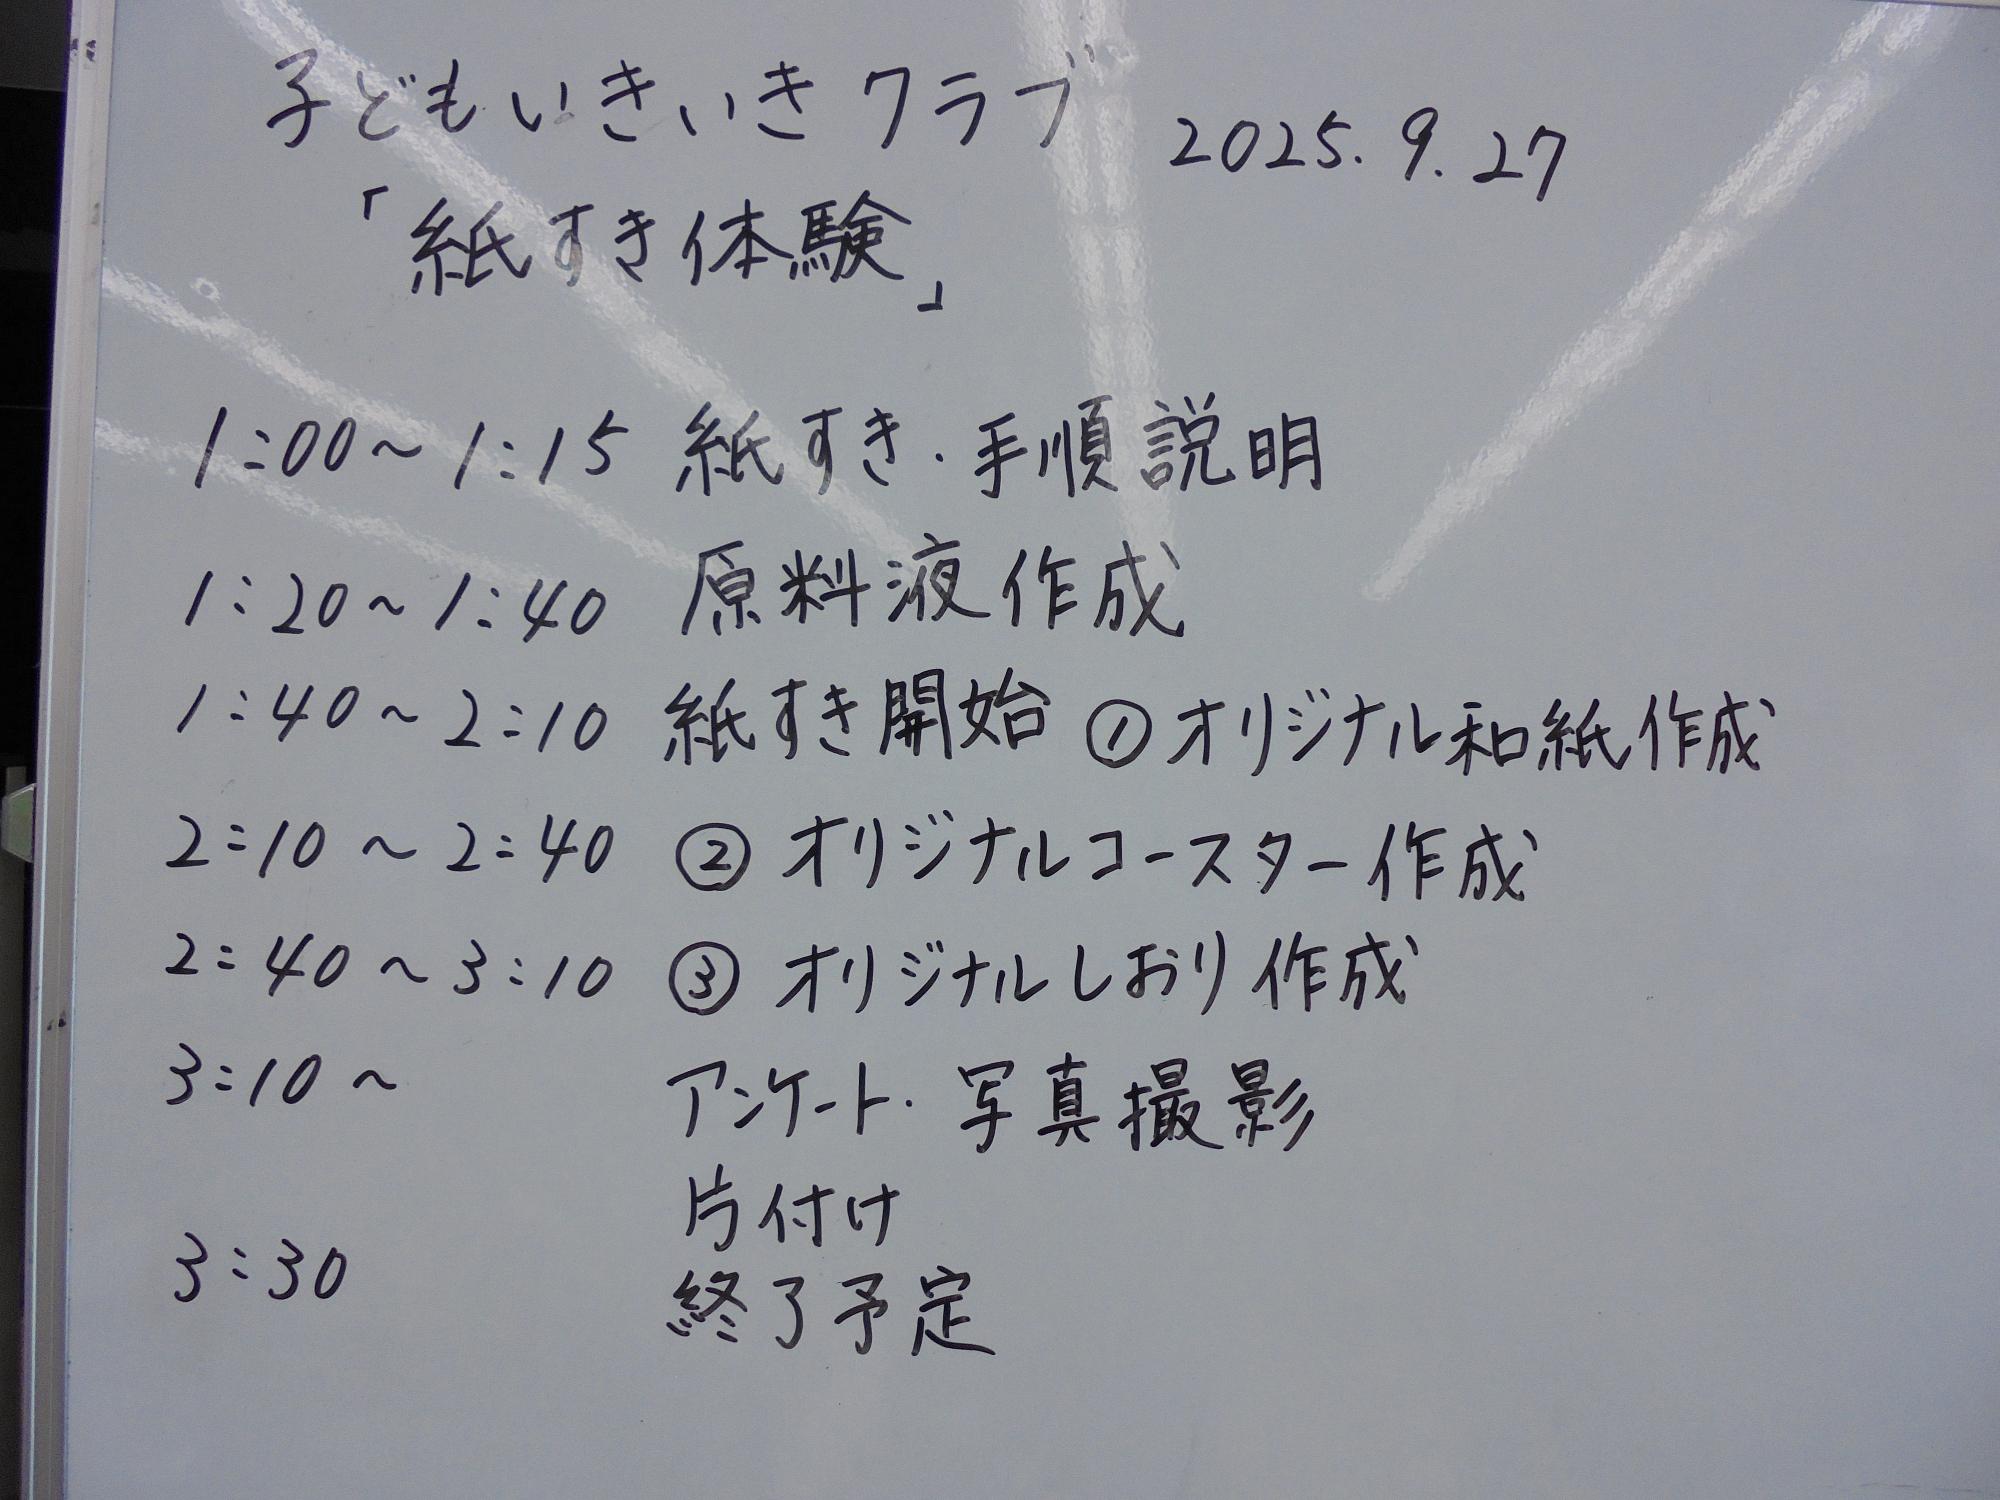 子どもいきいきクラブ 2025.9.27
「紙すき体験」
1:00～1:15 紙すき・手順説明
1:20～1:40 原料液作成
1:40～2:10 紙すき開始 ①オリジナル和紙作成
2:10～2:40 ②オリジナルコースター作成
2:40～3:10 ③オリジナルしおり作成
3:10～ アンケート・写真撮影
片付け
3:30 終了予定